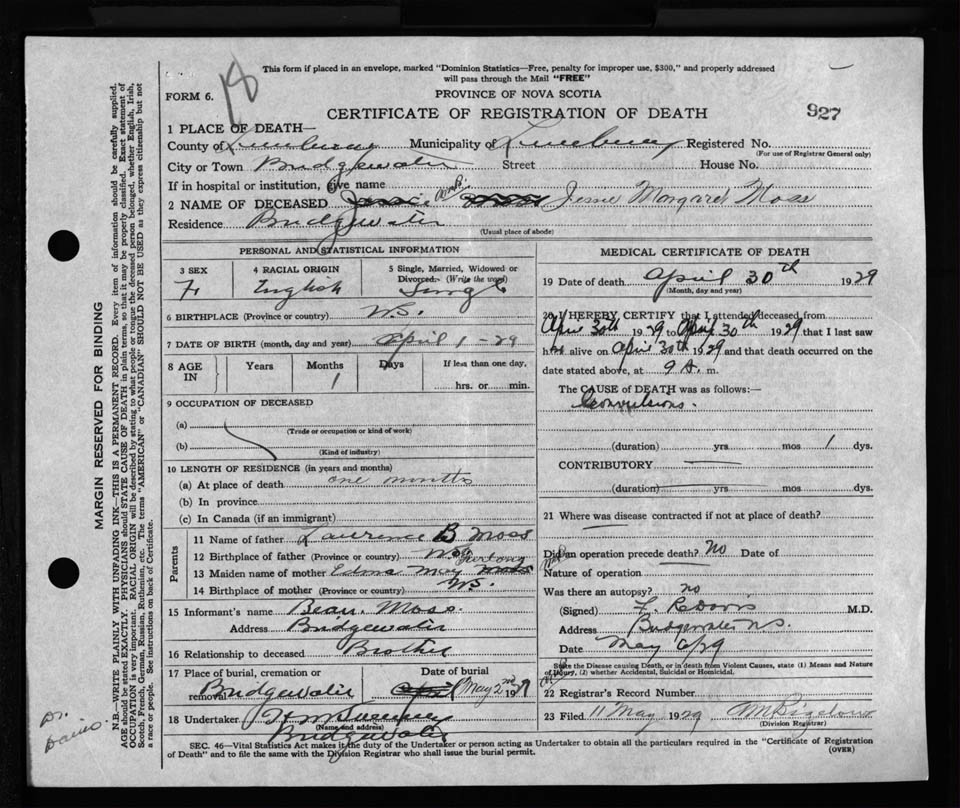 18
This form if placed in an envelope, marked "Dominion Statistics—Free, penalty for improper use, $300," and properly addressed
will pass through the Mail "FREE"
FORM 6.
PROVINCE OF NOVA SCOTIA
927
CERTIFICATE OF REGISTRATION OF DEATH
1 PLACE OF DEATH—
County of Lunenburg Municipality of Lunenburg Registered No.
(For use of Registrar General only)
City or Town Bridgewater Street House No.
If in hospital or institution, give name
2 NAME OF DECEASED Jessie Margaret Moss
Residence Bridgewater
(Usual place of abode)
PERSONAL AND STATISTICAL INFORMATION
3 SEX 4 RACIAL ORIGIN 5 Single, Married, Widowed or
Divorced.- (Write the word)
F. English Single
6 BIRTHPLACE (Province or country) N.S.
7 DATE OF BIRTH (month, day and year) April 1 - 29
8 AGE IN Years Months Days If less than one day.
1 hrs. or min.
9 OCCUPATION OF DECEASED
(a)
(Trade or occupation or kind of work)
(b)
(Kind of industry)
10 LENGTH OF RESIDENCE (in years and months)
(a) At place of death one months
(b) In province
(c) In Canada (if an immigrant)
Parents
11 Name of father Lawrence B Moss
12 Birthplace of father (Province or country) N.S.
13 Maiden name of mother Edna May
14 Birthplace of mother (Province or country) N.S.
15 Informant's name Bean. Moss.
Address Bridgewater
16 Relationship to deceased Brother
17 Place of burial, cremation or Date of burial
removal Bridgewater April May 2nd 1929
18 Undertaker
(Name and address)
Bridgewater
MEDICAL CERTIFICATE OF DEATH
19 Date of death April 30th 1929
(Month, day and year)
20 I HEREBY CERTIFY that I attended deceased from
April 30th 1929 to April 30th 1929 that I last saw
her alive on April 30th 1929 and that death occurred on the
date stated above, at 9 A. m.
The CAUSE of DEATH was as follows:—
Convulsions.
(duration) yrs mos 1 dys.
CONTRIBUTORY
(duration) yrs mos dys.
21 Where was disease contracted if not at place of death?
Did an operation precede death? No Date of
Nature of operation
Was there an autopsy? no
(Signed) M.D.
Address Bridgewater N.S.
Date May 6/29
State the Disease causing Death, or in death from Violent Causes, state (1) Means and Nature
of Injury, (2) whether Accidental, Suicidal or Homicidal.
22 Registrar's Record Number
23 Filed 11 May 1929 M Bigelow
(Division Registrar)
SEC. 46—Vital Statistics Act makes it the duty of the Undertaker or person acting as Undertaker to obtain all the particulars required in the "Certificate of Registration
of Death" and to file the same with the Division Registrar who shall issue the burial permit.
(OVER)
MARGIN RESERVED FOR BINDING
N.B.—WRITE PLAINLY WITH UNFADING INK—THIS IS A PERMANENT RECORD. Every item of information should be carefully supplied.
AGE should be stated EXACTLY. PHYSICIANS should STATE CAUSE OF DEATH in plain terms, so that it may be properly classified. Exact statement of
OCCUPATION is very important. RACIAL ORIGIN will be described by stating to what people or tongue the deceased person belonged, whether English, Irish,
Scotch, French, German, Russian, Ruthenian, etc. The terms "AMERICAN" or "CANADIAN" SHOULD NOT BE USED as they express citizenship but not
a race or people. See instructions on back of Certificate.
Dr.